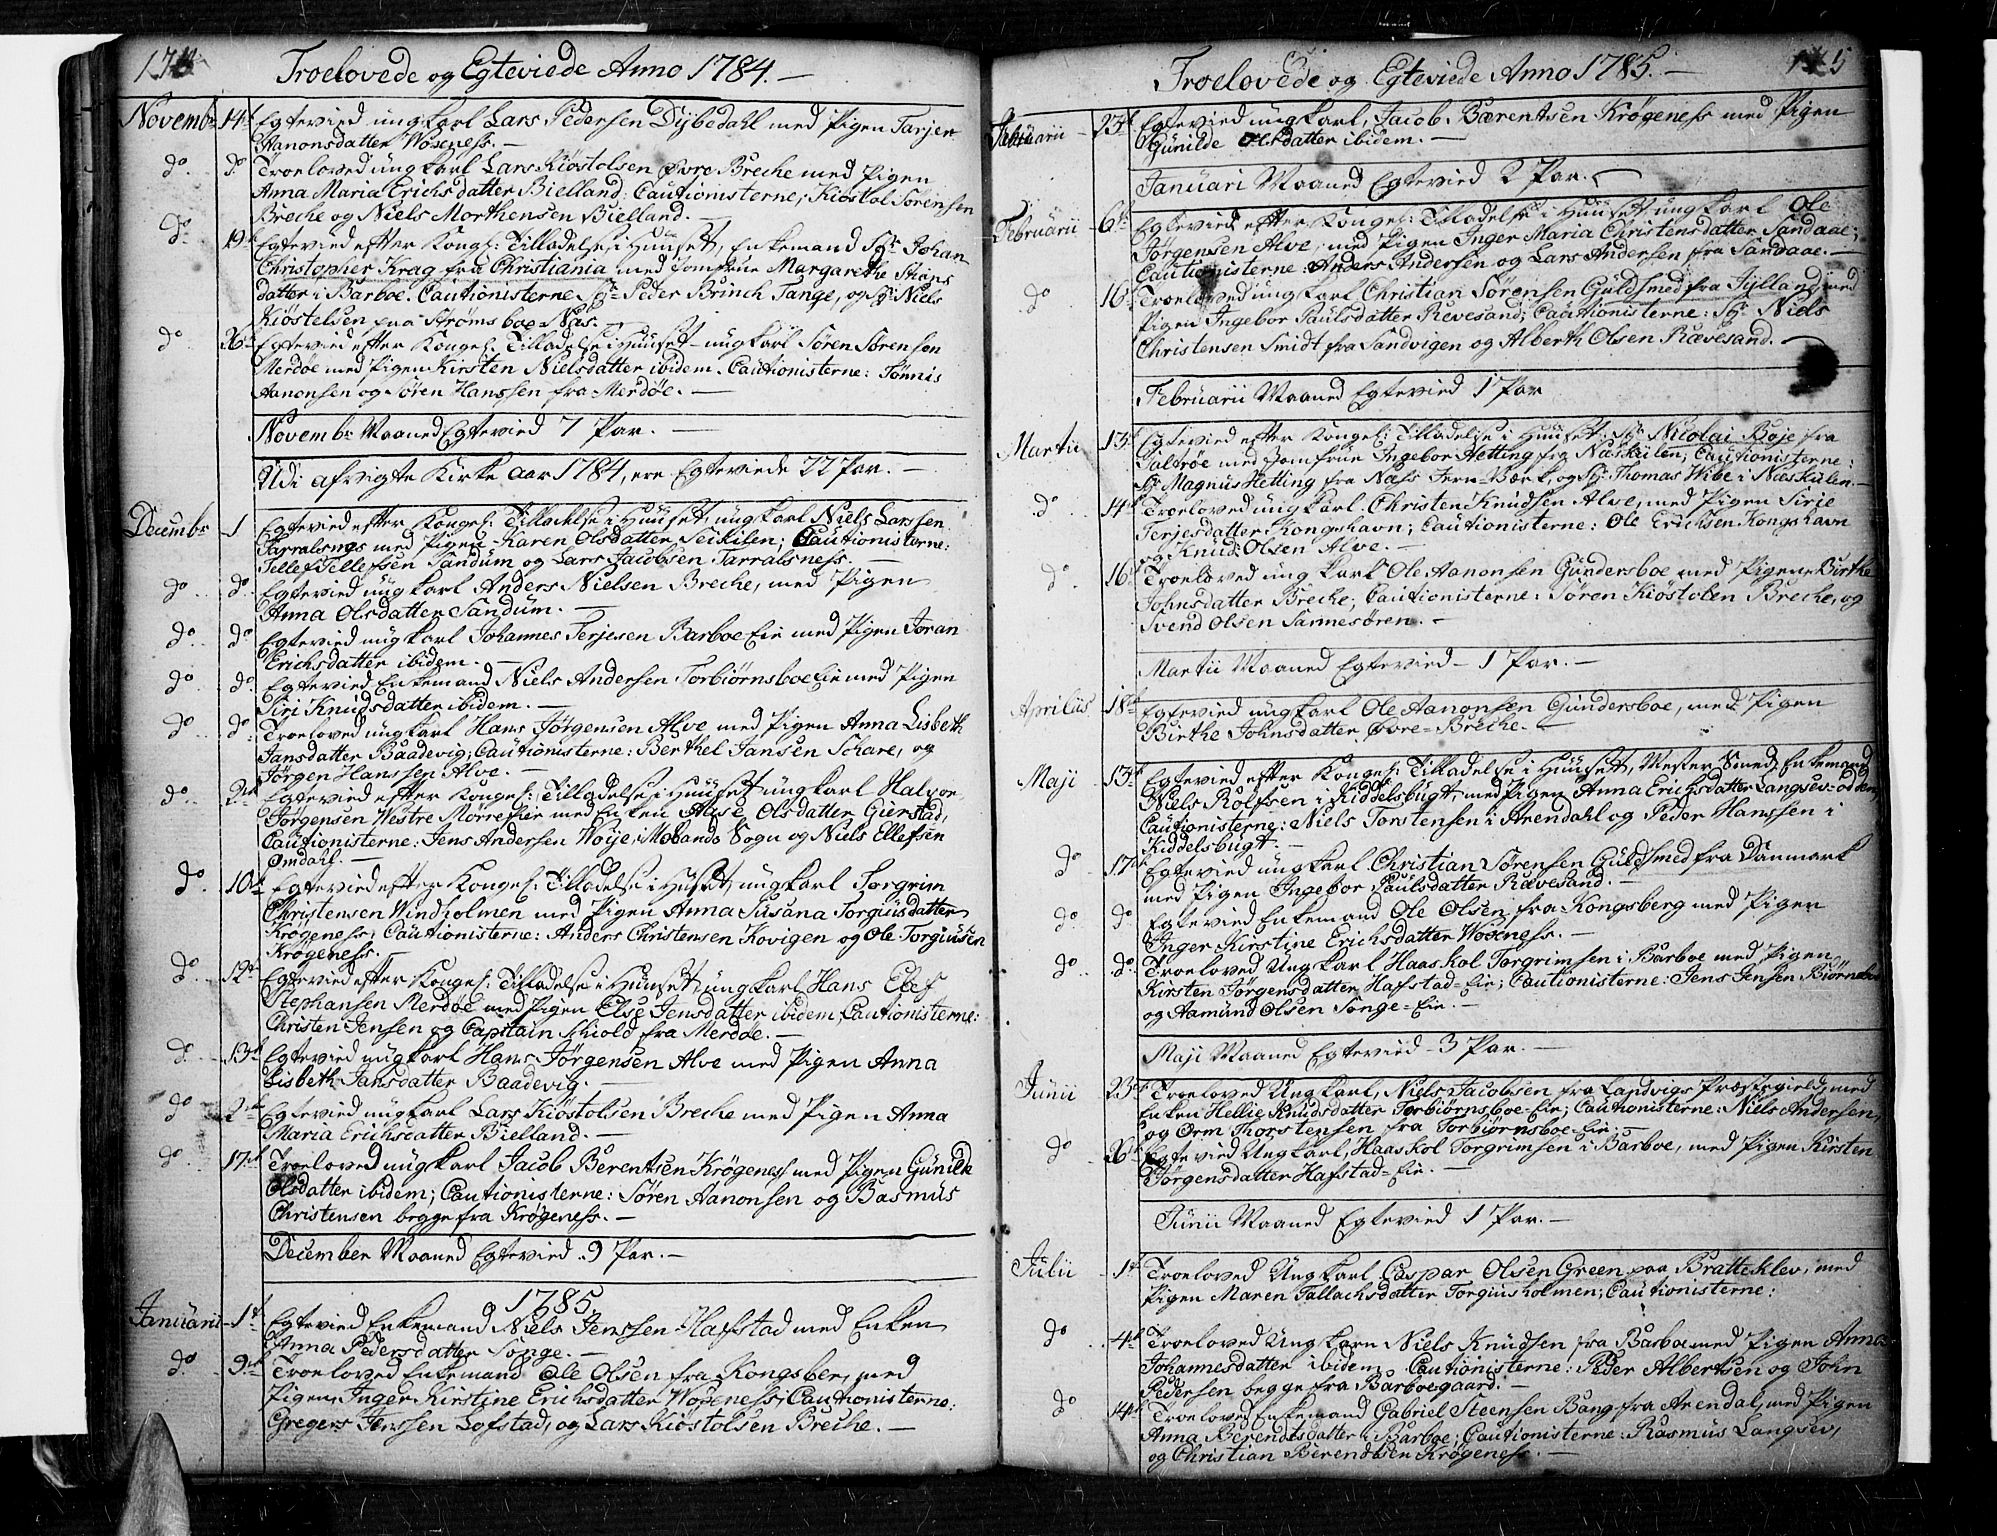 Troelovede og Egteviede Anno 1784.
Novembr 14de Egtevied ungkarl Lars Pedersen Dybedahl med Pigen Tarjer
Aanonsdatter Woxeness.
do do Troeloved ungkarl Lars Kiøstolsen Øvre Breche med Pigen
Anna Maria Erichsdatter Bielland; Cautionisterne: Kiøstol Sörensen
Breche og Niels Morthensen Bielland.
do 19de Egtevied efter Kongel: Tilladelse i Huuset, Enkemand Sr Johan
Christopher Krag fra Christiania med Jomfrue Margarethe
datter i Barboe. Cautionisterne Sr Peder Brinch Tange, og Sr Niels
Kiöstelsen paa Strömsboe-Næs.
do 26de Egtevied efter Kongel: Tilladelse i Huuset ungkarl Sören Sörensen
Merdöe med Pigen Kirsten Nielsdatter ibidem. Cautionisterne: Tönnis
Aanonsen og Sören Hanssen fra Merdöe.
Novembr Maaned Egtevied 7 Par.
Udi afvigte Kirke Aar 1784, ere Egteviede 77 Par.
Decembr 1 Egtevied efter Kongel: Tilladelse i Huuset, ungkarl Niels Larssen
Tarralsnæs med Pigen Karen Olsdatter Seikilen; Cautionisterne:
Tellef Tellefsen Sandum og Lars Jacobsen Tarralsness.
do do Egtevied ungkarl Anders Nielsen Breche, med Pigen
Anna Olsdatter Sandum.
do do Egtevied ungkarl Johannes Terjesen Barboe Eie med Pigen Joran
Erichsdatter ibidem.
do do Egtevied Enkemand Niels Andersen Torbiörnsboe Eie med Pigen
Siri Knudsdatter ibidem.
do do Troeloved ungkarl Hans Jörgensen Alve med Pigen Anna Lisbeth
Jansdatter Baadevig; Cautionisterne: Berthel Jansen Schare, og
Jörgen Hanssen Alve.
do 2den Egtevied efter Kongel: Tilladelse i Huuset ungkarl Halvor
Jörgensen Westre Morrefier med Enken Else Olsdatter Gierstad,
Cautionisterne: Jens Andersen Woje i Molands Sogn og Niels Ellefsen
Omdahl.
do 10de Egtevied efter Kongel: Tilladelse i Huset, ungkarl Torgrim
Christensen Windholmen med Pigen Anna Susana Torgiusdatter
Krögeness, Cautionisterne: Anders Christensen Kovigen og Ole Torgiusen
Krögeness.
do 12te Egtevied efter Kongel: Tilladelse i Huuset, ungkarl Hans Elef
Stephansen Merdöe med Pigen Else Jensdatter ibidem, Cautionisterne:
Christen Jensen og Capitain Schiold fra Merdöe.
do 13de Egtevied ungkarl Hans Jörgensen Alve med Pigen Anna
Lisbeth Jansdatter Baadevig.
do Egtevied ungkarl Lars Kiöstolsen Breche med Pigen Anna
Maria Erichsdatter Bielland.
do 17de Troeloved ungkarl Jacob Berentsen Krögeness med Pigen Gunild
Olsdatter ibidem; Cautionisterne: Sören Aanonsen og Rasmus
Christensen begge fra Krögeness.
December Maaned Egtevied 9 Par.
1785.
Januarii 1te Egtevied Enkemand Niels Jenssen Hafstad med Enken
Anna Pedersdatter Songe.
do 9de Troeloved Enkemand Ole Olsen fra Kongsberg, med
Pigen Inger Kirstine Erichsdatter Woxeness, Cautionisterne:
Gregers Jenssen Lofstad, og Lars Kiöstolsen Breche.
Troelovede og Egteviede Anno 1785. 175
Januarii 23de Egtevied ungkarl, Jacob Bærentsen Krögeness med Pigen
Gunilde Olsdatter ibidem.
Januari Maaned Egtevied 2 Par.
Februarii 6te Egtevied efter Kongel: Tilladelse i Huuset ungkarl Ole
Jörgensen Alve, med Pigen Inger Maria Christensdatter Sandaae;
Cautionisterne: Anders Andersen og Lars Andersen fra Sandaae.
do 16de Troeloved ungkarl Christian Sörensen Guldsmed fra Jylland med
Pigen Ingebor Paulsdatter Revesand; Cautionisterne: Sr Niels
Christensen Smidt fra Sandvigen og Alberth Olsen Rævesand.
Februarii Maaned Egtevied 1 Par
Martii 13de Egtevied efter Kongel: Tilladelse i Huuset: Sr Nicolai Boje fra
Saltröe med Jomfrue Ingebor Hetting fra Næskilen; Cautionisterne:
Sr Magnus Hetting fra Næss Jern-Værk, og Sr Thomas Wibe i Næskilen.
do 14de Troeloved ungkarl Christen Knudsen Alve, med Pigen Sirie
Terjesdatter Kongshavn; Cautionisterne: Ole Erichsen Kongshavn
og Knud Olsen Alve.
do 16de Troeloved ungkarl Ole Aanonsen Gundersboe med Pigen Birthe
Johnsdatter Breche; Cautionisterne: Sören Kiöstolsen Breche, og
Svend Olsen Sannesören.
Martii Maaned Egtevied 1 Par.
Aprilis 18de Egtevied ungkarl Ole Aanonsen Gundersboe, med Pigen
Birthe Johnsdatter Øvre-Breche.
Maji 13de Egtevied efter Kongel: Tilladelse i Huuset, Mester Smed, Enkemand
Niels Rolfsen i Kiddelsbugt, med Pigen Anna Erichsdatter Langsev-odden,
Cautionisterne: Niels Torstensen i Arendahl og Peder Hanssen i
Kiddelsbugt.
do 17de Egtevied ungkarl Christian Sörensen Guldsmed fra Danmark
med Pigen Ingebor Paulsdatter Rævesand.
do do Egtevied Enkemand Ole Olsen fra Kongsberg med Pigen
Inger Kirstine Erichsdatter Woxeness.
do do Troeloved Ungkarl Haaskol Torgrimsen i Barboe med Pigen
Kirsten Jörgensdatter Hafstad-Eie; Cautionisterne: Jens Jensen Biörneboe
og Aamund Olsen Songe-Eie.
Maji Maaned Egtevied 3 Par.
Junii 23de Troeloved Ungkarl, Niels Jacobsen fra Landvigs Præstegield, med
Enken Hellie Knudsdatter Torbiörnsboe-Eie; Cautionisterne: Niels Andersen,
og Orm Thorstensen fra Torbiörnsboe-Eie.
do 26de Egtevied Ungkarl, Haaskol Torgrimsen i Barboe, med Pigen Kirsten
Jörgensdatter Hafstad-Eie.
Junii Maaned Egtevied 1 Par.
Julii 1te Troeloved Ungkarl Caspar Olsen Green paa Bratteklev, med
Pigen Maren Tallachsdatter Torgiusholmen; Cautionisterne:
do 4de Troeloved Ungkarn Niels Knudsen fra Barboe med Pigen Anna
Johannesdatter ibidem. Cautionisterne: Peder Albertsen og John
Pedersen begge fra Barboegaard.
do 14de Troeloved Enkemand Gabriel Steensen Bang fra Arendal, med Pigen
Anna Berendtsdatter i Barboe; Cautionisterne: Rasmus Langsev,
og Christian Berendtsen Krögeness.